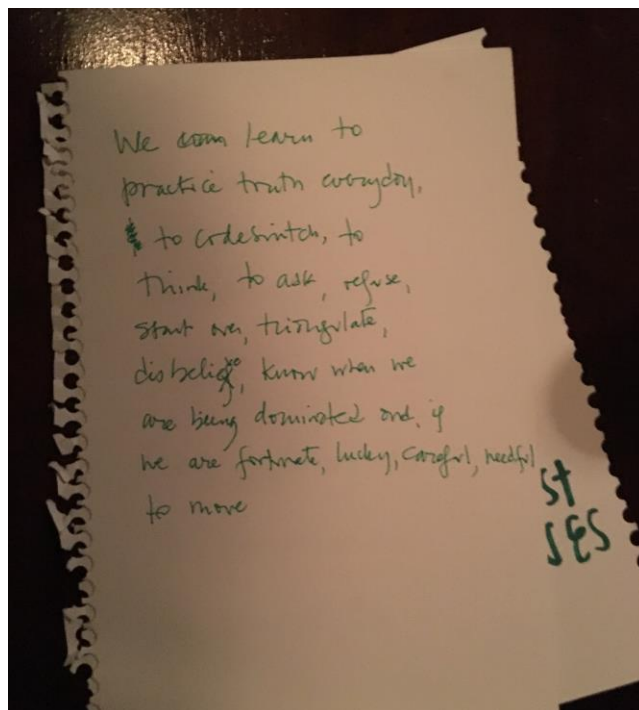 We can learn to
practice truth everyday,
to codeswitch, to
think, to ask, refuse,
start over, triangulate,
disbelieve, know when we
are being dominated and, if
we are fortunate, lucky, careful, needful
to move
st
SES